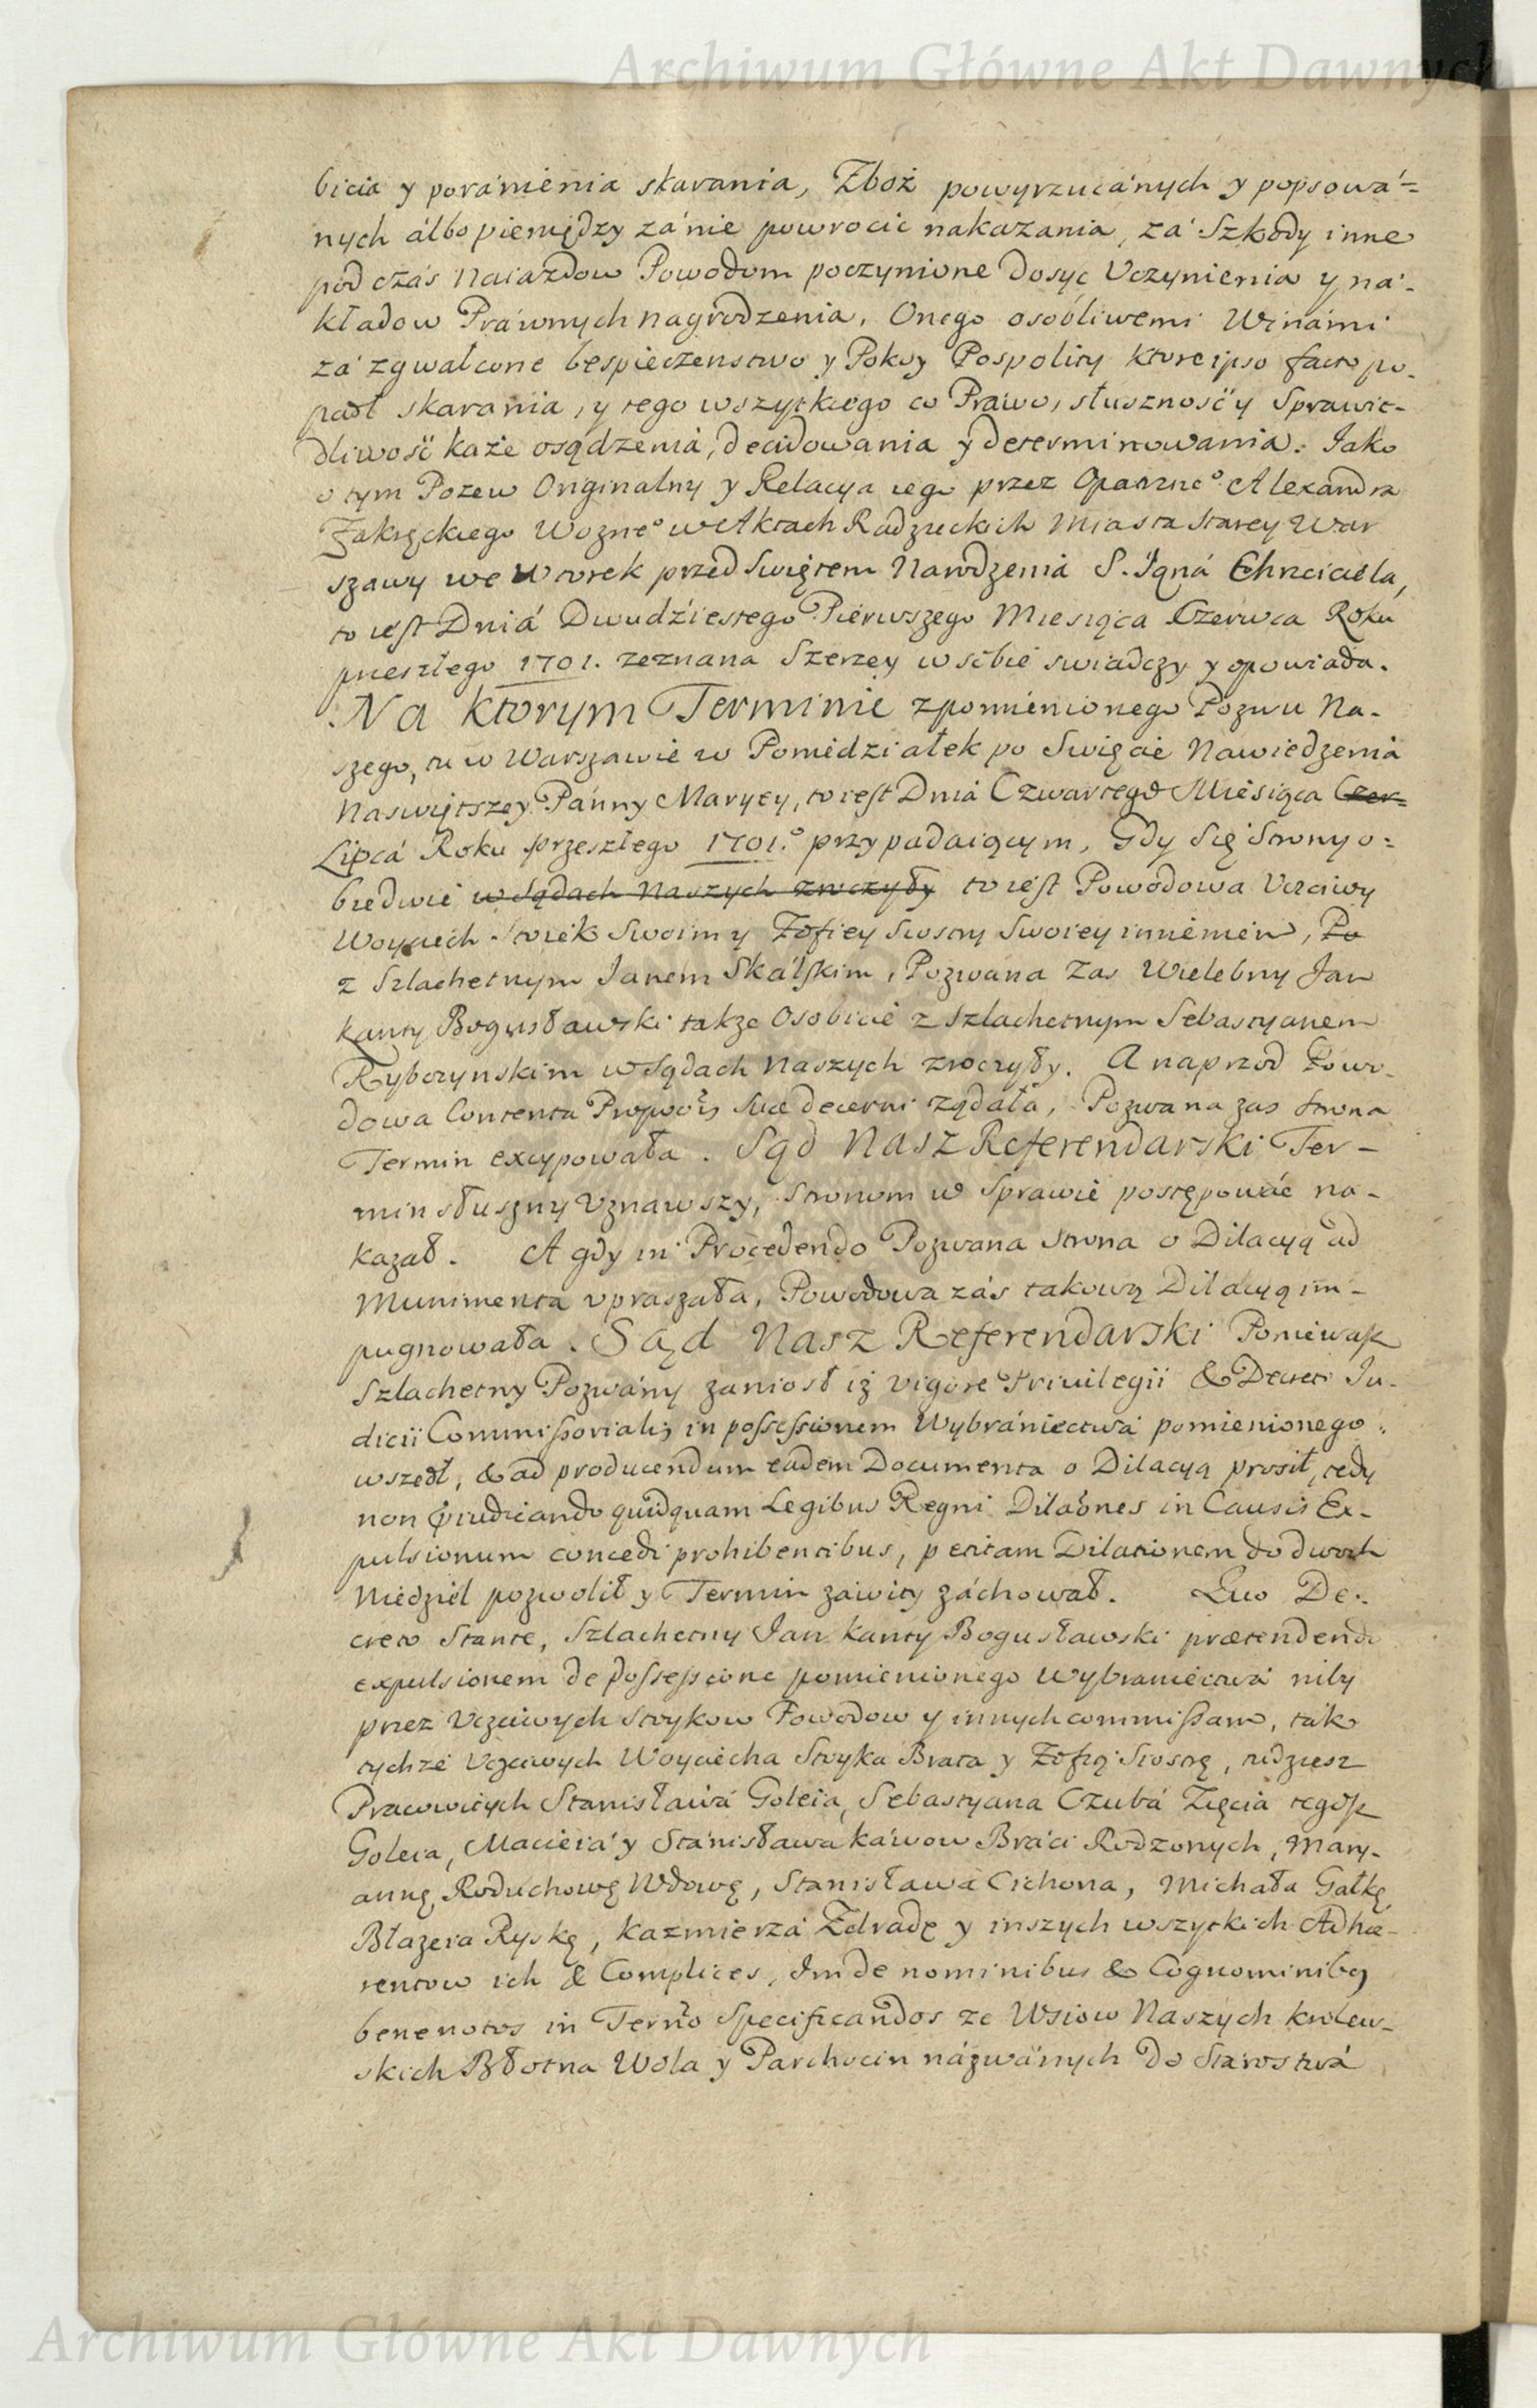 Archiwum Główne Akt Dawnych
bicia y poránienia skarania, Zboż powyrzucánych y popsowá=
nych álbo pieniędzy zá nie powrocić nakazania, zá Szkody inne
pod czás Naiazdow Powodom poczynione Dosyc Uczynienia y ná-
kładow Práwnych nagrodzenia, Onego osobliwemi Winámi
zá zgwałcone bespieczenstwo y Pokoy Pospolity ktore ipso facto po-
padł skarania, y tego wszytkiego co Prawo, słusznosć y Sprawie-
dliwość każe osądzenia, decidowania y determinowania. Jako
o tym Pozew Originalny y Relacya iego przez Opatrzne⁰ Alexandra
Zakrzęckiego Wozne⁰ w Aktach Radzieckich Miasta Starey War
szawy we Wtorek przed Swiętem Narodzenia S. Jąná Chrzciciela,
to iest Dniá Dwudziestego Pierwszego Miesiąca Czerwca Roku
przeszłego 1701. zeznana Szerzey w sobie swiadczy y opowiada.
Na ktorym Terminie z pomienionego Pozwu Na-
szego, tu w Warszawie w Poniedziałek po Swięcie Nawiedzenia
Naswiętszey Pánny Maryey, to iest Dnia Czwartego Miesiąca Czer=
Lipcá Roku przeszłego 1701.⁰ przypadaiącym, Gdy Się Strony o=
biedwie w Sądach Naszych zroczyły to iest Powodowa Uczciwy
Woyciech Stoiek Swoim y Zofiey Siostry Swoiey imieniem, Po
z Szlachetnym Janem Skálskim, Pozwana Zas Wielebny Jan
Kanty Bogusławski także Osobiscie z Szlachetnym Sebastyanem
Rybczynskim w Sądach Naszych zroczyły. A naprzod Powo-
dowa Contenta Propoōis suæ decerni żądała, Pozwana zas strona
Termin excypowała. Sąd Nasz Referendarski Ter-
min słuszny Uznawszy, Stronom w Sprawie postępować na-
kazał. A gdy in Procedendo Pozwana Strona o Dilacyą ad
Munimenta upraszała, Powodowa zás takową Dilacyą im-
pugnowała. Sąd Nasz Referendarski Poniewaß
Szlachetny Pozwány zaniosł iż vigore Privilegii & Decreti Ju-
dicii Commißorialis in possessionem Wybrániectwá pomienionego
wszedł, & ad producendum eadem Documenta o Dilacyą prosił, tedy
non præiudicando quidquam Legibus Regni Dilaōnes in Causis Ex-
pulsionum concedi prohibentibus, petitam Dilationem do dwoch
Niedziel pozwolił y Termin zawity záchował. Quo De-
creto Stante, Szlachetny Jan Kanty Bogusławski prætendendo
expulsionem de possessione pomienionego Wybraniectwá niby
przez Uczciwych Stoykow Powodow y innych commißam, táko
tychże Uczciwych Woyciecha Stoyka Brata y Zofią Siostrę, tudziesz
Pracowitych Stanisława Goleia, Sebastyana Czubá Zięcia tegoß
Goleia, Macieiá y Stánisława Káwow Bráci Rodzonych, Mary-
annę Roduchowę Wdowę, Stanisława Cichona, Michała Gałkę,
Błażeia Ryskę, Kazmierza Zdradę y inszych wszytkich Adhæ-
rentow ich & Complices, Inde nominibus & Cognominibus
bene notos in Termo Specificandos ze Wsiow Naszych krolew-
skich Błotna Wola y Parchocin názwánych do Stárostwá
Archiwum Główne Akt Dawnych